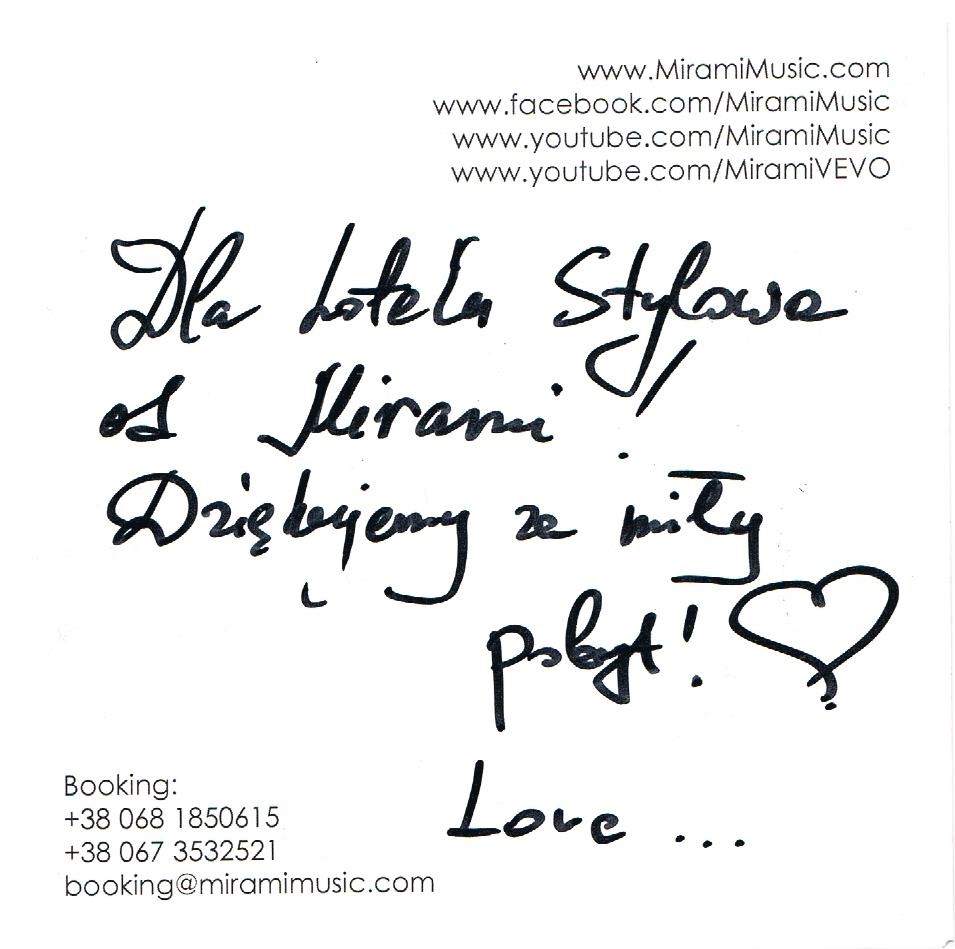 www.MiramiMusic.com
www.facebook.com/MiramiMusic
www.youtube.com/MiramiMusic
www.youtube.com/MiramiVEVO
Dla hotelu Stylowe
od Mirami.
Dziękujemy za miły
pobyt!
Love ...
Booking:
+38 068 1850615
+38 067 3532521
booking@miramimusic.com